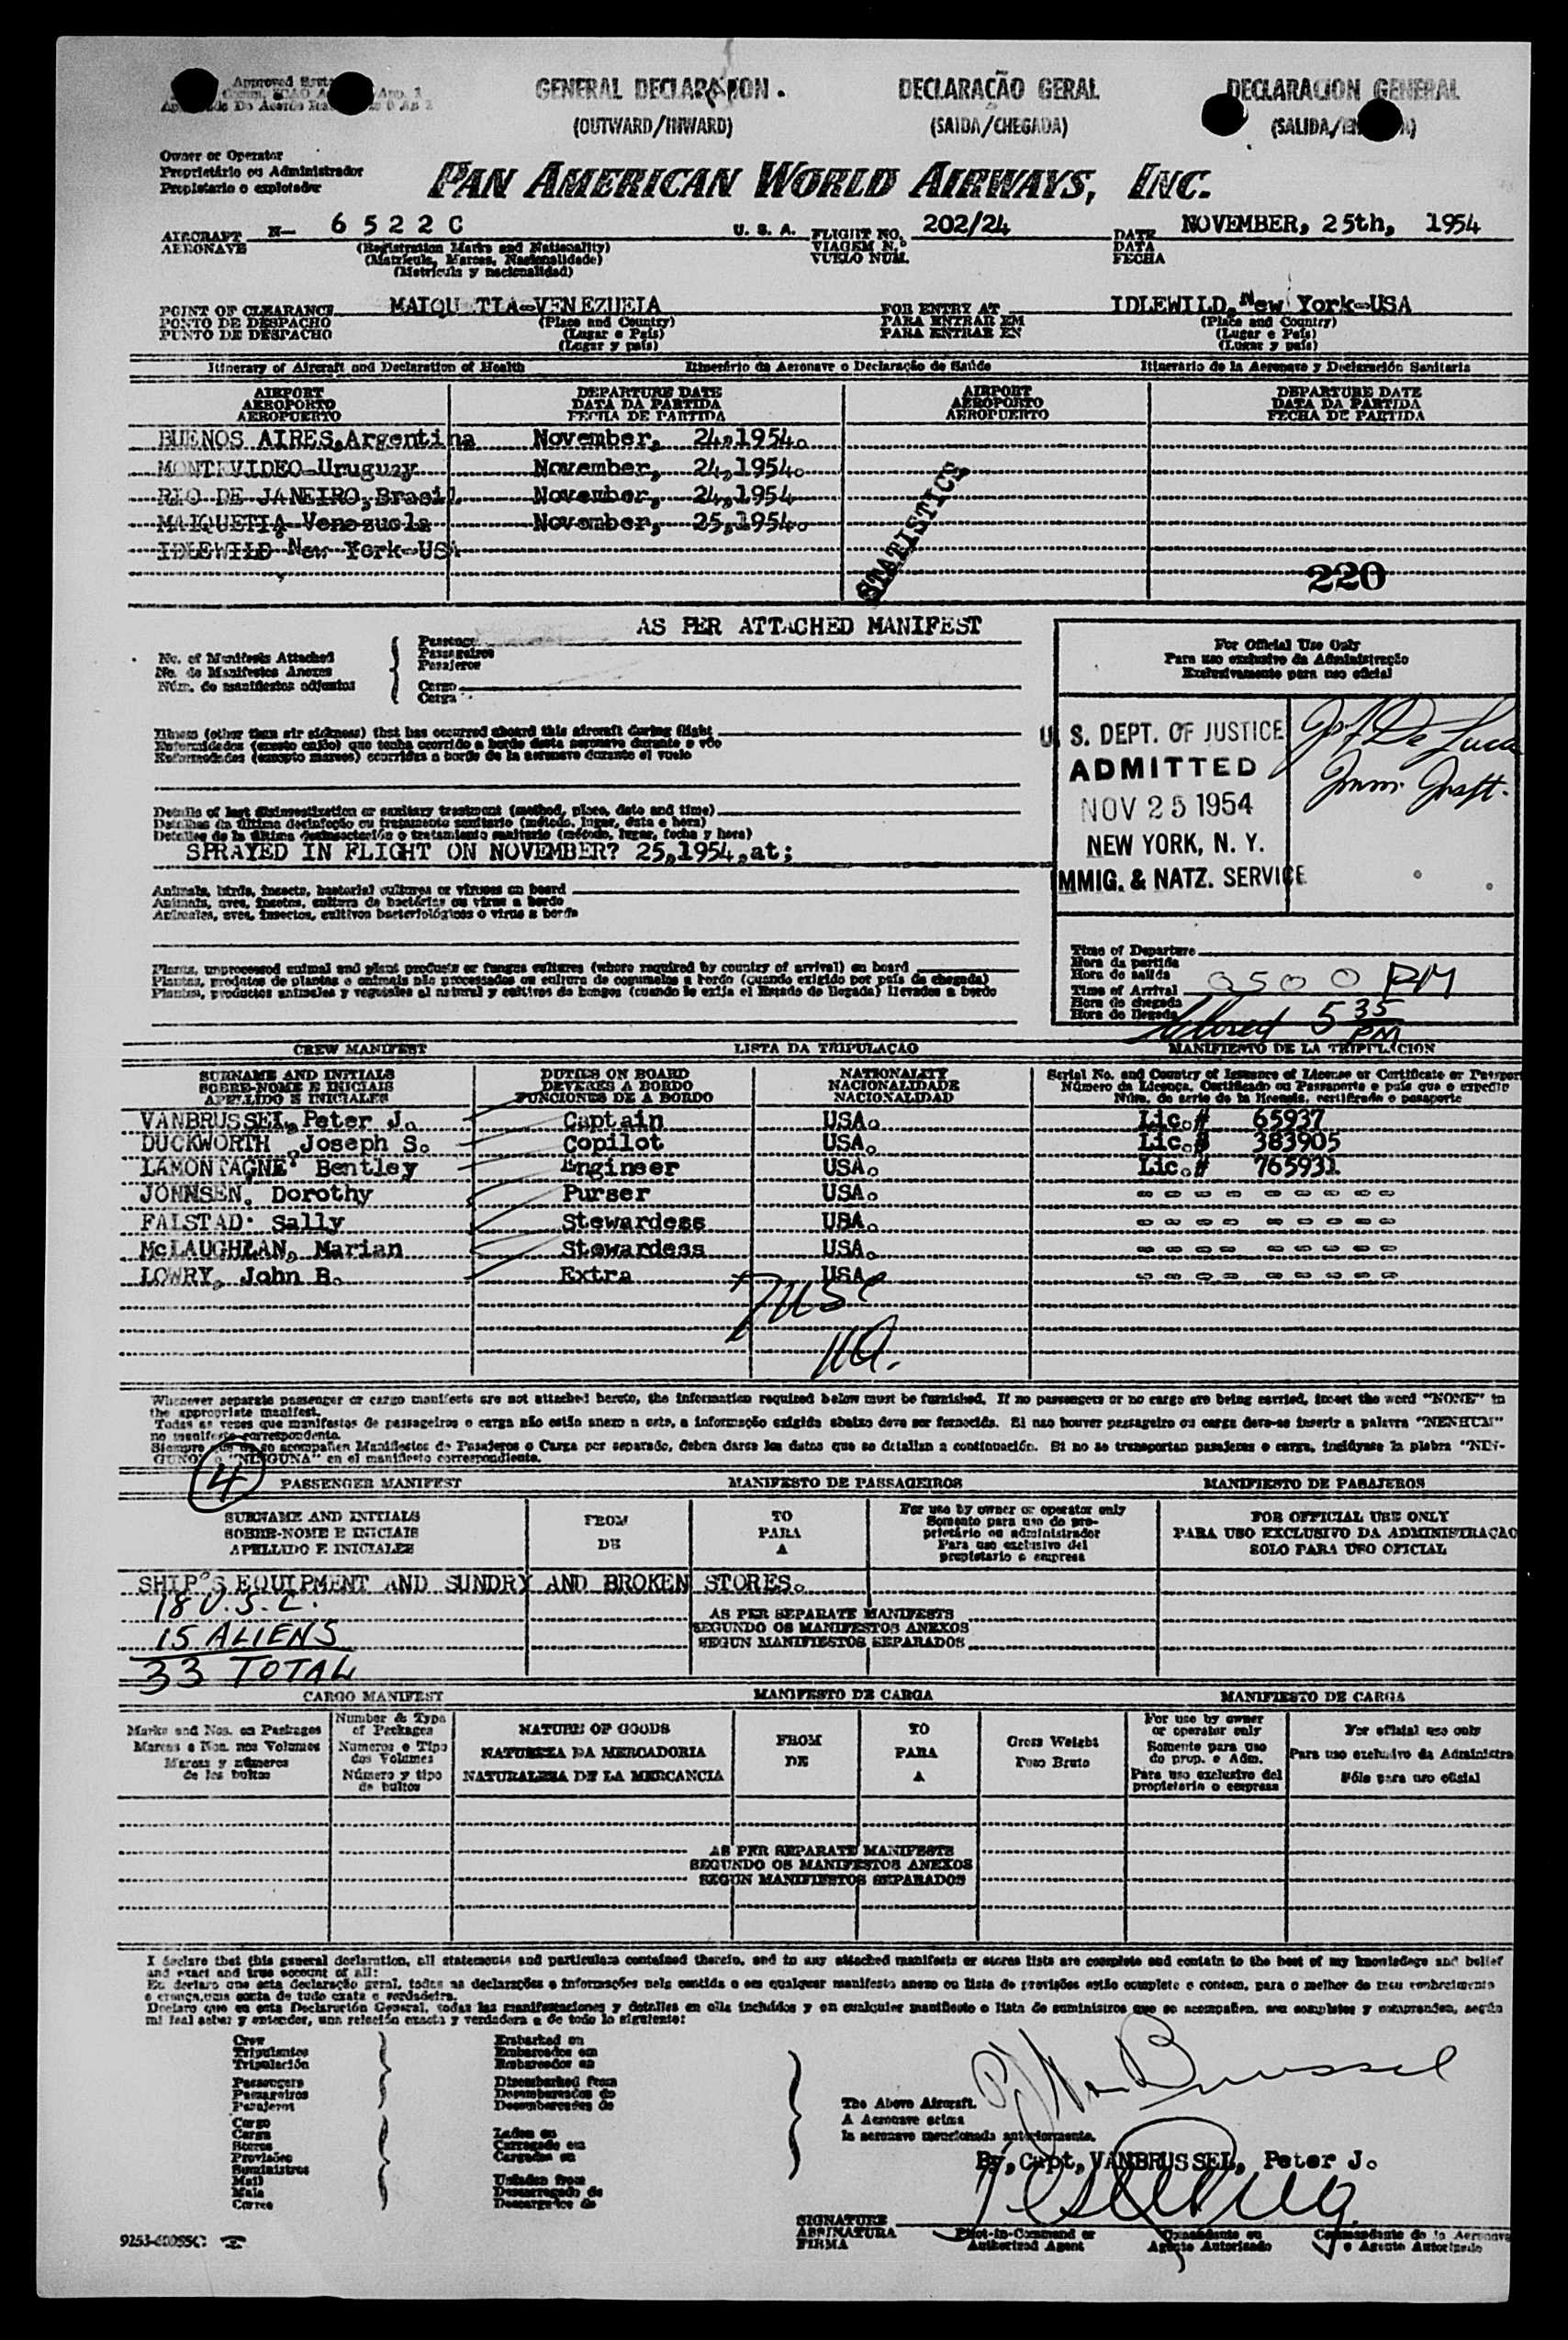 GENERAL DECLARATION.
(OUTWARD/INWARD)
DECLARAÇÃO GERAL
(SAIDA/CHEGADA)
DECLARACION GENERAL
Owner or Operator
Proprietário ou Administrador
Propietario o explotador
PAN AMERICAN WORLD AIRWAYS, INC.
AIRCRAFT N- 6 5 2 2 C U. S. A. FLIGHT NO. 202/24 DATE NOVEMBER, 25th, 1954
AERONAVE (Registration Marks and Nationality) VIAGEM N.º DATA
(Matricula, Marcas, Nacionalidade) VUELO NUM. FECHA
(Matricula y nacionalidad)
POINT OF CLEARANCE MAIQU TIA-VENEZUELA FOR ENTRY AT IDLEWILD, New York-USA
PONTO DE DESPACHO (Place and Country) PARA ENTRAR EM (Place and Country)
PUNTO DE DESPACHO (Lugar e País) PARA ENTRAR EN (Lugar e País)
(Lugar y país) (Lugar y país)
Itinerary of Aircraft and Declaration of Health Itinerário da Aeronave e Declaração de Saúde Itinerario de la Aeronave y Declaración Sanitaria
AIRPORT DEPARTURE DATE AIRPORT DEPARTURE DATE
AEROPORTO DATA DA PARTIDA AEROPORTO DATA DA PARTIDA
AEROPUERTO FECHA DE PARTIDA AEROPUERTO FECHA DE PARTIDA
BUENOS AIRES,Argentina November, 24,1954.
MONTEVIDEO-Uruguay November, 24,1954.
RIO DE JANEIRO,Brasil November, 24,1954
MAIQUETIA Venezuela November, 25,1954.
IDLEWILD New York-USA
STATISTICS
220
AS PER ATTACHED MANIFEST
No. of Manifests Attached
No. de Manifestos Anexos
Núm. de manifiestos adjuntos
Passageiros
Pasajeros
Cargo
Carga
For Official Use Only
Para uso exclusivo da Administração
Exclusivamente para uso oficial
U. S. DEPT. OF JUSTICE
ADMITTED
NOV 25 1954
NEW YORK, N. Y.
IMMIG. & NATZ. SERVICE
Illness (other than air sickness) that has occurred aboard this aircraft during flight
Enfermidades (exceto enjôo) que tenha ocorrido a bordo desta aeronave durante o vôo
Enfermedades (excepto mareos) ocurridas a bordo de la aeronave durante el vuelo
Details of last disinsectization or sanitary treatment (method, place, date and time)
Detalhes da última desinfeção ou tratamento sanitario (método, lugar, data e hora)
Detalles de la última desinsectación o tratamiento sanitario (método, lugar, fecha y hora)
SPRAYED IN FLIGHT ON NOVEMBER? 25,1954,at;
Animals, birds, insects, bacterial cultures or viruses on board
Animais, aves, insetos, cultura de bactérias ou virus a bordo
Animales, aves, insectos, cultivos bacteriológicos o virus a bordo
Plants, unprocessed animal and plant products or fungus cultures (where required by country of arrival) on board
Plantas, produtos de plantas e animais não processados ou cultura de cogumelos a bordo (quando exigido por país da chegada)
Plantas, productos animales y vegetales al natural y cultivos de hongos (cuando lo exija el Estado de llegada) llevados a bordo
Time of Departure
Hora da partida
Hora de salida
Time of Arrival 0500 PM
Hora da chegada
Hora de llegada 5 35 PM
CREW MANIFEST LISTA DA TRIPULAÇAO MANIFIESTO DE LA TRIPULACION
SURNAME AND INITIALS DUTIES ON BOARD NATIONALITY Serial No. and Country of Issuance of License or Certificate or Passport
SOBRE-NOME E INICIAIS DEVERES A BORDO NACIONALIDADE Número da Licença, Certificado ou Passaporte e país que o expediu
APELLIDO E INICIALES FUNCIONES DE A BORDO NACIONALIDAD Núm. de serie de la licencia, certificado o pasaporte
VANBRUSSEL,Peter J. Captain USA. Lic.# 65937
DUCKWORTH ,Joseph S. Copilot USA. Lic.# 383905
LAMONTAGNE Bentley Engineer USA. Lic.# 765931
JOHNSEN, Dorothy Purser USA.
FALSTAD Sally Stewardess USA.
McLAUGHLAN, Marian Stewardess USA.
LOWRY, John B. Extra USA
7 USC
Whenever separate passenger or cargo manifests are not attached hereto, the information required below must be furnished. If no passengers or no cargo are being carried, insert the word "NONE" in
the appropriate manifest.
Todas as vezes que manifestos de passageiros e carga não estão anexo a este, a informação exigida abaixo deve ser fornecida. Si nao houver passageiro ou carga deve-se inserir a palavra "NENHUM"
no manifesto correspondente.
Siempre que no se acompañen Manifiestos de Pasajeros o Carga por separado, deben darse los datos que se detallan a continuación. Si no se transportan pasajeros o carga, inclúyase la plabra "NIN-
GUNO" o "NINGUNA" en el manifiesto correspondiente.
4
PASSENGER MANIFEST MANIFESTO DE PASSAGEIROS MANIFIESTO DE PASAJEROS
SURNAME AND INITIALS FROM TO For use by owner or operator only FOR OFFICIAL USE ONLY
SOBRE-NOME E INICIAIS DE PARA Somente para uso do pro- PARA USO EXCLUSIVO DA ADMINISTRAÇAO
APELLIDO E INICIALES A prietário ou administrador SOLO PARA USO OFICIAL
Para uso exclusivo del
propietario o empresa
SHIP'S EQUIPMENT AND SUNDRY AND BROKEN STORES.
18 U.S.C.
AS PER SEPARATE MANIFESTS
SEGUNDO OS MANIFESTOS ANEXOS
15 ALIENS
SEGUN MANIFIESTOS SEPARADOS
33 TOTAL
CARGO MANIFEST MANIFESTO DE CARGA MANIFIESTO DE CARGA
Marks and Nos. on Packages Number & Type of Packages NATURE OF GOODS FROM TO Gross Weight For use by owner or operator only For official use only
Marcas e Nos. nos Volumes Numeros e Tipo dos Volumes NATUREZA DA MERCADORIA DE PARA Peso Bruto Somente para uso do prop. e Adm. Para uso exclusivo da Administra
Marcas y números de los bultos Número y tipo de bultos NATURALEZA DE LA MERCANCIA A Para uso exclusivo del propietario o empresa Sólo para uso oficial
AS PER SEPARATE MANIFESTS
SEGUNDO OS MANIFESTOS ANEXOS
SEGUN MANIFIESTOS SEPARADOS
I declare that this general declaration, all statements and particulars contained therein, and in any attached manifests or stores lists are complete and contain to the best of my knowledge and belief
and exact and true account of all:
Eu declaro que esta declaração geral, todas as declarações e informações nela contida e em qualquer manifesto anexo ou lista de provisões estão completo e contem, para o melhor do meu conhecimento
e crença,uma conta de tudo exata e verdadeira.
Declaro que en esta Declaración General, todas las manifestaciones y detalles en ella incluidos y en cualquier manifiesto o lista de suministros que se acompañen, son completos y comprenden, según
mi leal saber y entender, una relación exacta y verdadera a de todo lo siguiente:
Crew Embarked on
Tripulantes Embarcados em
Tripulación Embarcados en
Passengers Disembarked from
Passageiros Desembarcados do
Pasajeros Desembarcados de
Cargo
Carga Laden on
Stores Carregado em
Provisões Cargados en
Suministros
Mail Unladen from
Mala Descarregado do
Correo Descargados de
P. J. Van Brussel
The Above Aircraft.
A Aeronave acima
la aeronave mencionada anteriormente.
By, Capt, VANBRUSSEL, Peter J.
SIGNATURE
ASSINATURA Pilot-in-Command or Comandante ou Comandante de la Aeronave
FIRMA Authorized Agent Agente Autorizado o Agente Autorizado